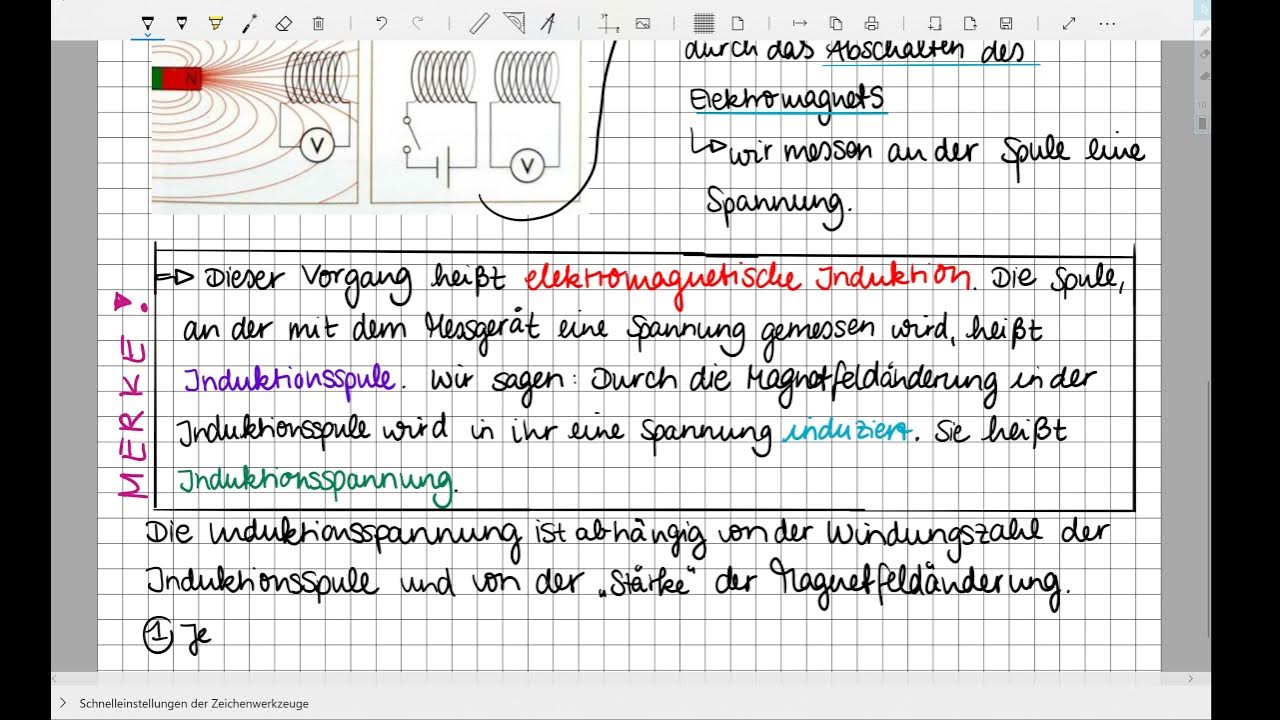 N
V
V
durch das Abschalten des
Elektromagnets
↳ wir messen an der Spule eine
Spannung.
MERKE!
⇒ Dieser Vorgang heißt elektromagnetische Induktion. Die Spule,
an der mit dem Messgerät eine Spannung gemessen wird, heißt
Induktionsspule. Wir sagen: Durch die Magnetfeldänderung in der
Induktionsspule wird in ihr eine Spannung induziert. Sie heißt
Induktionsspannung.
Die Induktionsspannung ist abhängig von der Windungszahl der
Induktionsspule und von der „Stärke“ der Magnetfeldänderung.
① Je
Schnelleinstellungen der Zeichenwerkzeuge